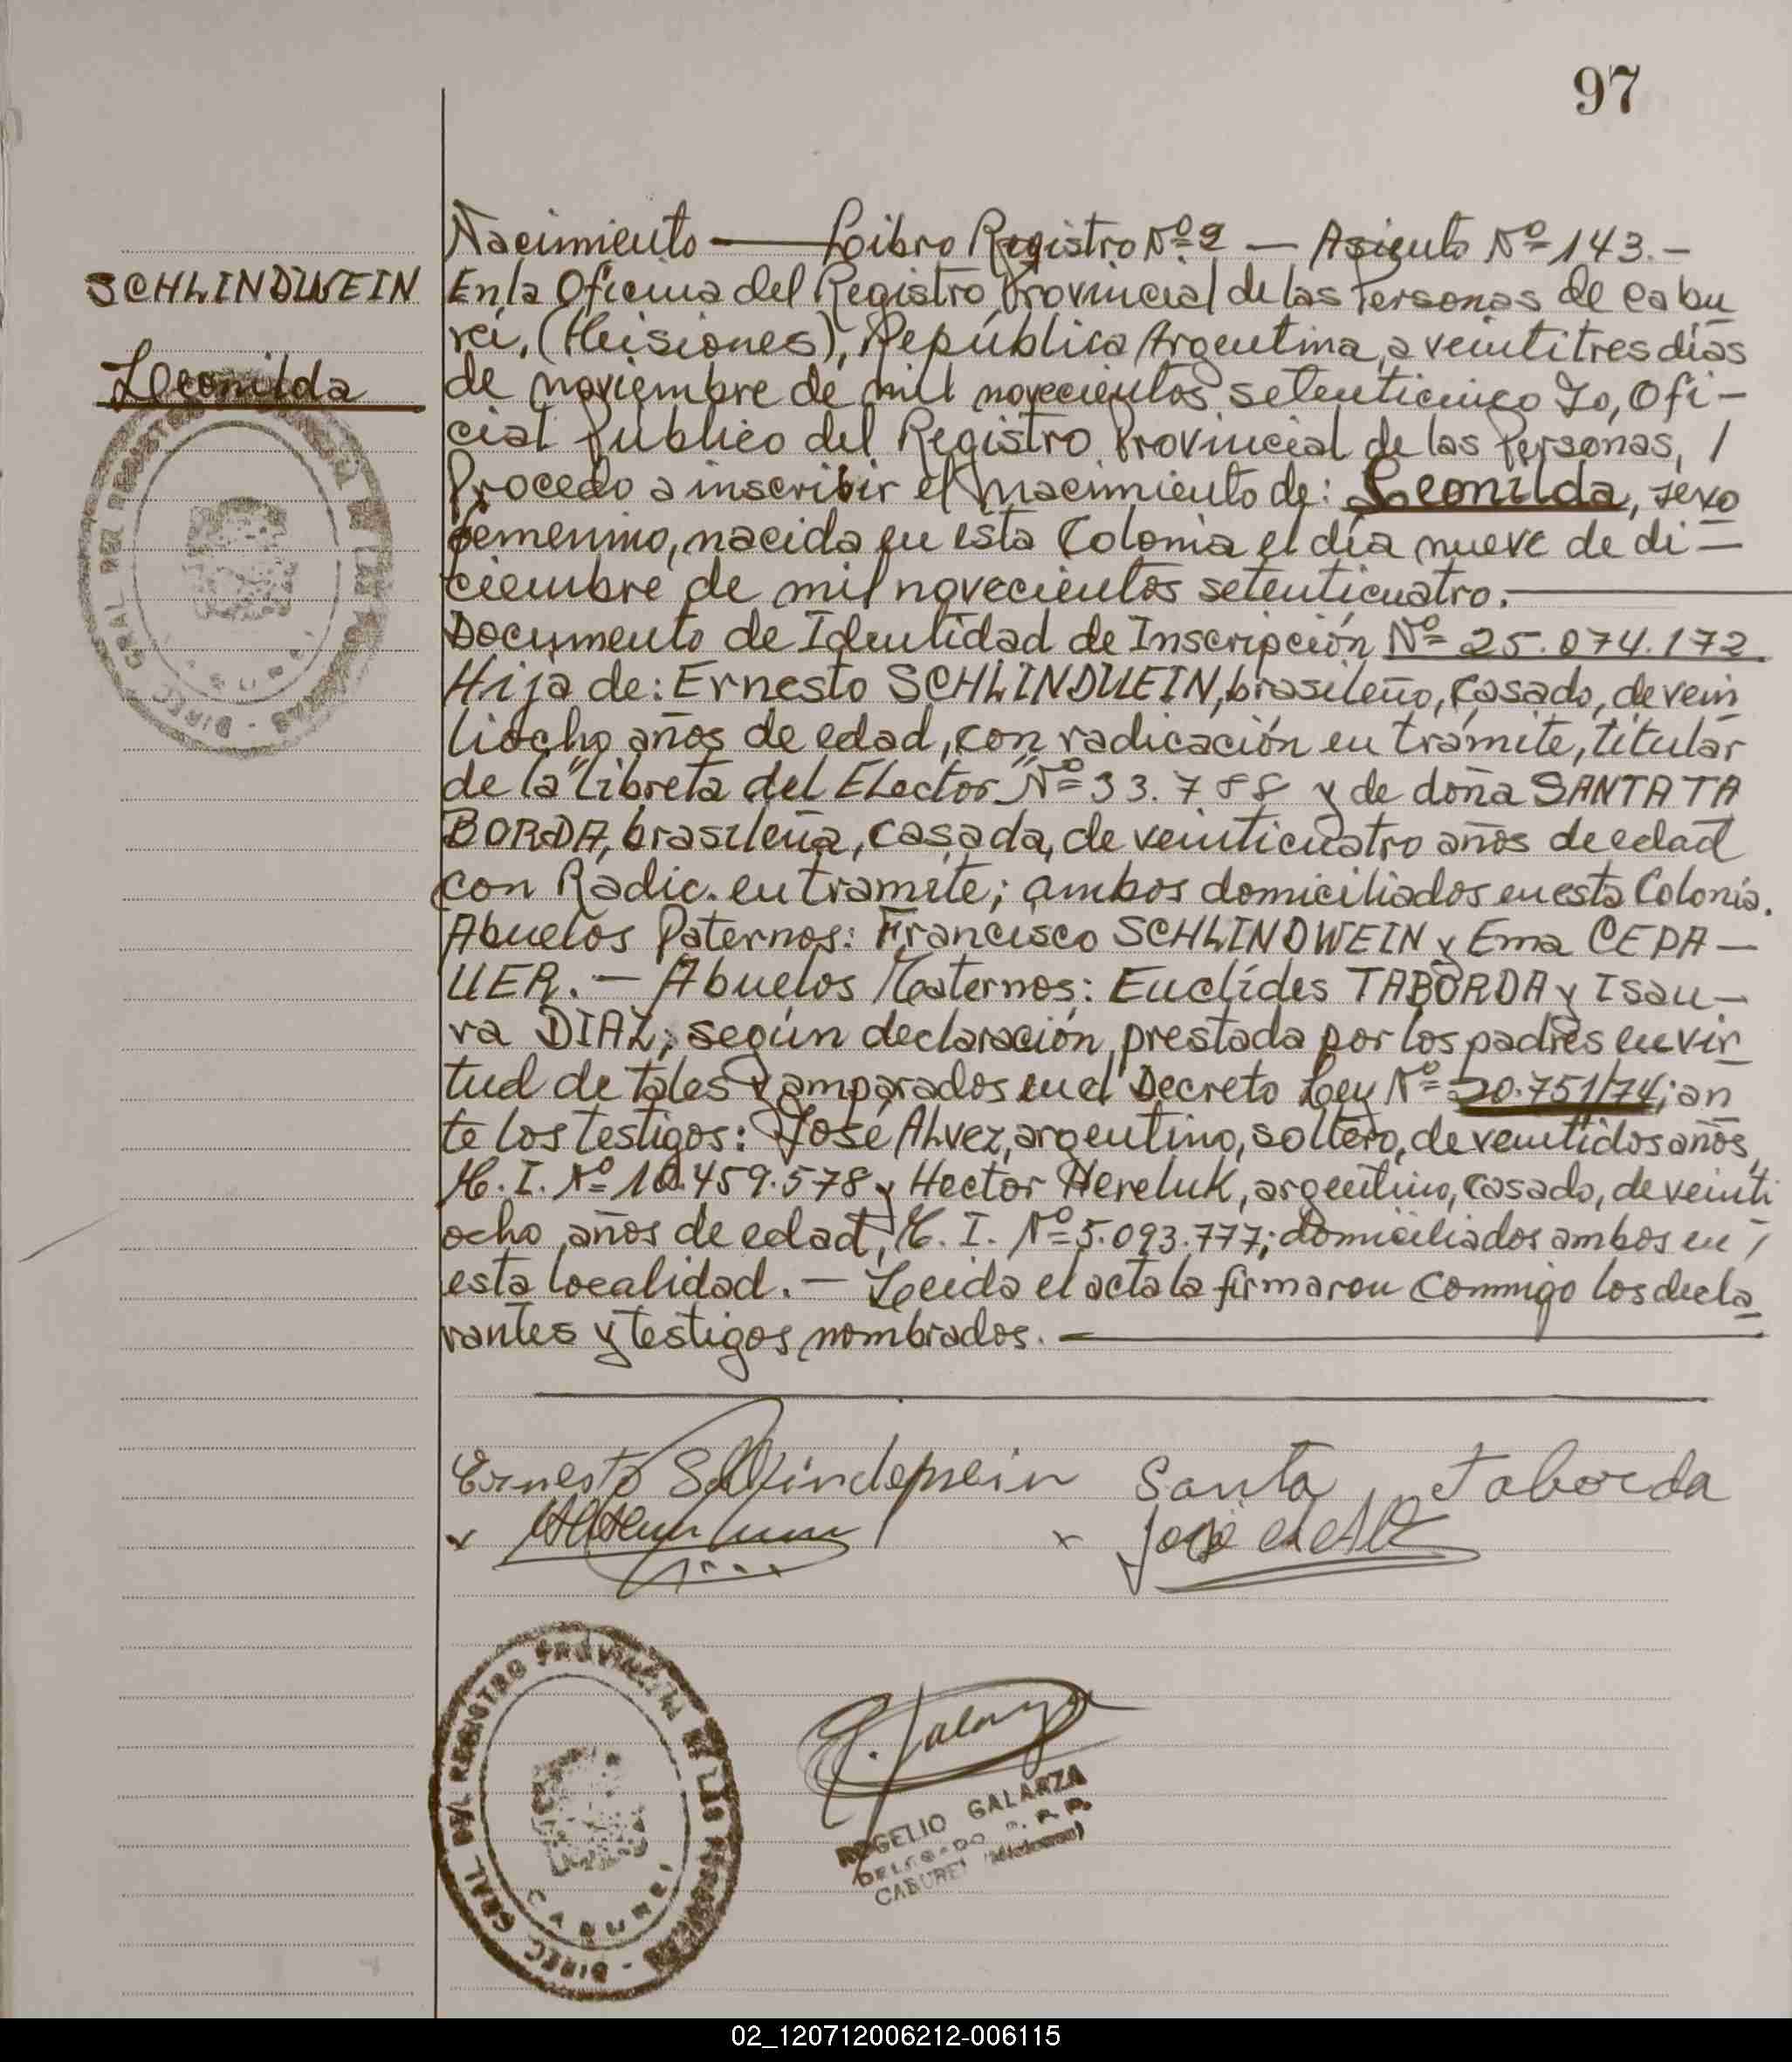 97
Nacimiento — Libro Registro Nº 2 — Asiento Nº 143.-
SCHLINDWEIN
En la Oficina del Registro Provincial de las Personas de Cabu
reí, (Misiones), República Argentina, a veintitres días
Leonilda
de noviembre de mil novecientos setenticinco Yo, Ofi-
cial Público del Registro Provincial de las Personas, /
Procedo a inscribir el nacimiento de: Leonilda, sexo
femenino, nacida en esta Colonia el día nueve de di-
ciembre de mil novecientos setenticuatro.
Documento de Identidad de Inscripción Nº 25.074.172
Hija de: Ernesto SCHLINDWEIN, brasileño, casado, de vein
tiocho años de edad, con radicación en trámite, titular
de la "Libreta del Elector" Nº 33.788 y de doña SANTA TA
BORDA, brasileña, casada, de veinticuatro años de edad
con Radic. en tramite; ambos domiciliados en esta Colonia.
Abuelos Paternos: Francisco SCHLINDWEIN y Ema CEPA-
UER.- Abuelos Maternos: Euclídes TABORDA y Isau-
ra DIAZ; según declaración, prestada por los padres en vir
tud de tales y amparados en el Decreto Ley Nº 20.751/74; an
te los testigos: José Alvez, argentino, soltero, de veintidos años,
M. I. Nº 10.459.578 y Hector Hereluk, argentino, casado, de veinti
ocho años de edad, M. I. Nº 5.093.777; domiciliados ambos en /
esta localidad.- Leida el acta la firmaron conmigo los decla
rantes y testigos nombrados.
Ernesto Schlindwein Santa Taborda
x x José
DIREC. GRAL DEL REGISTRO PROVINCIAL DE LAS PERSONAS
CABUREI
ROGELIO GALARZA
DELEGADO R. P. P.
CABUREI (Misiones)
02_120712006212-006115